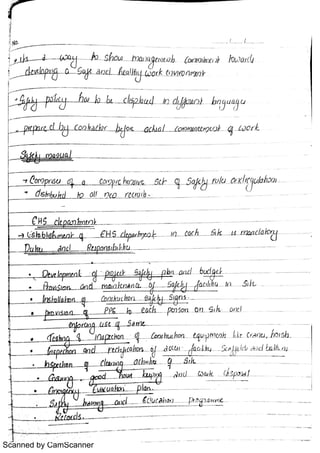 No.
• It is a way to show management's commitment towards
developing a safe and healthy work environment
• Safety policy has to be displayed in different languages
• prepared by contractor before actual commencement of work.
Safety manual
→ Comprises of a comprehensive set of safety rules and regulations
• distributed to all new recruits.
EHS department
→ Establishment of EHS department in each site is mandatory
Duties and Responsibilities
• Development of project safety plan and budget
• Provision and maintenance of safety facilities in site
• Installation of construction safety signs.
• provision of PPE to each person on site and
enforcing use of same
• Testing & inspection of construction equipment like cranes, hoists.
• Inspection and rectification of access facilities scaffolds and ladders
• Inspection of cleaning activities of site
• good house keeping and waste disposal
• Emergency Evacuation plan.
• Safety training and education programme
• Records.
Scanned by CamScanner